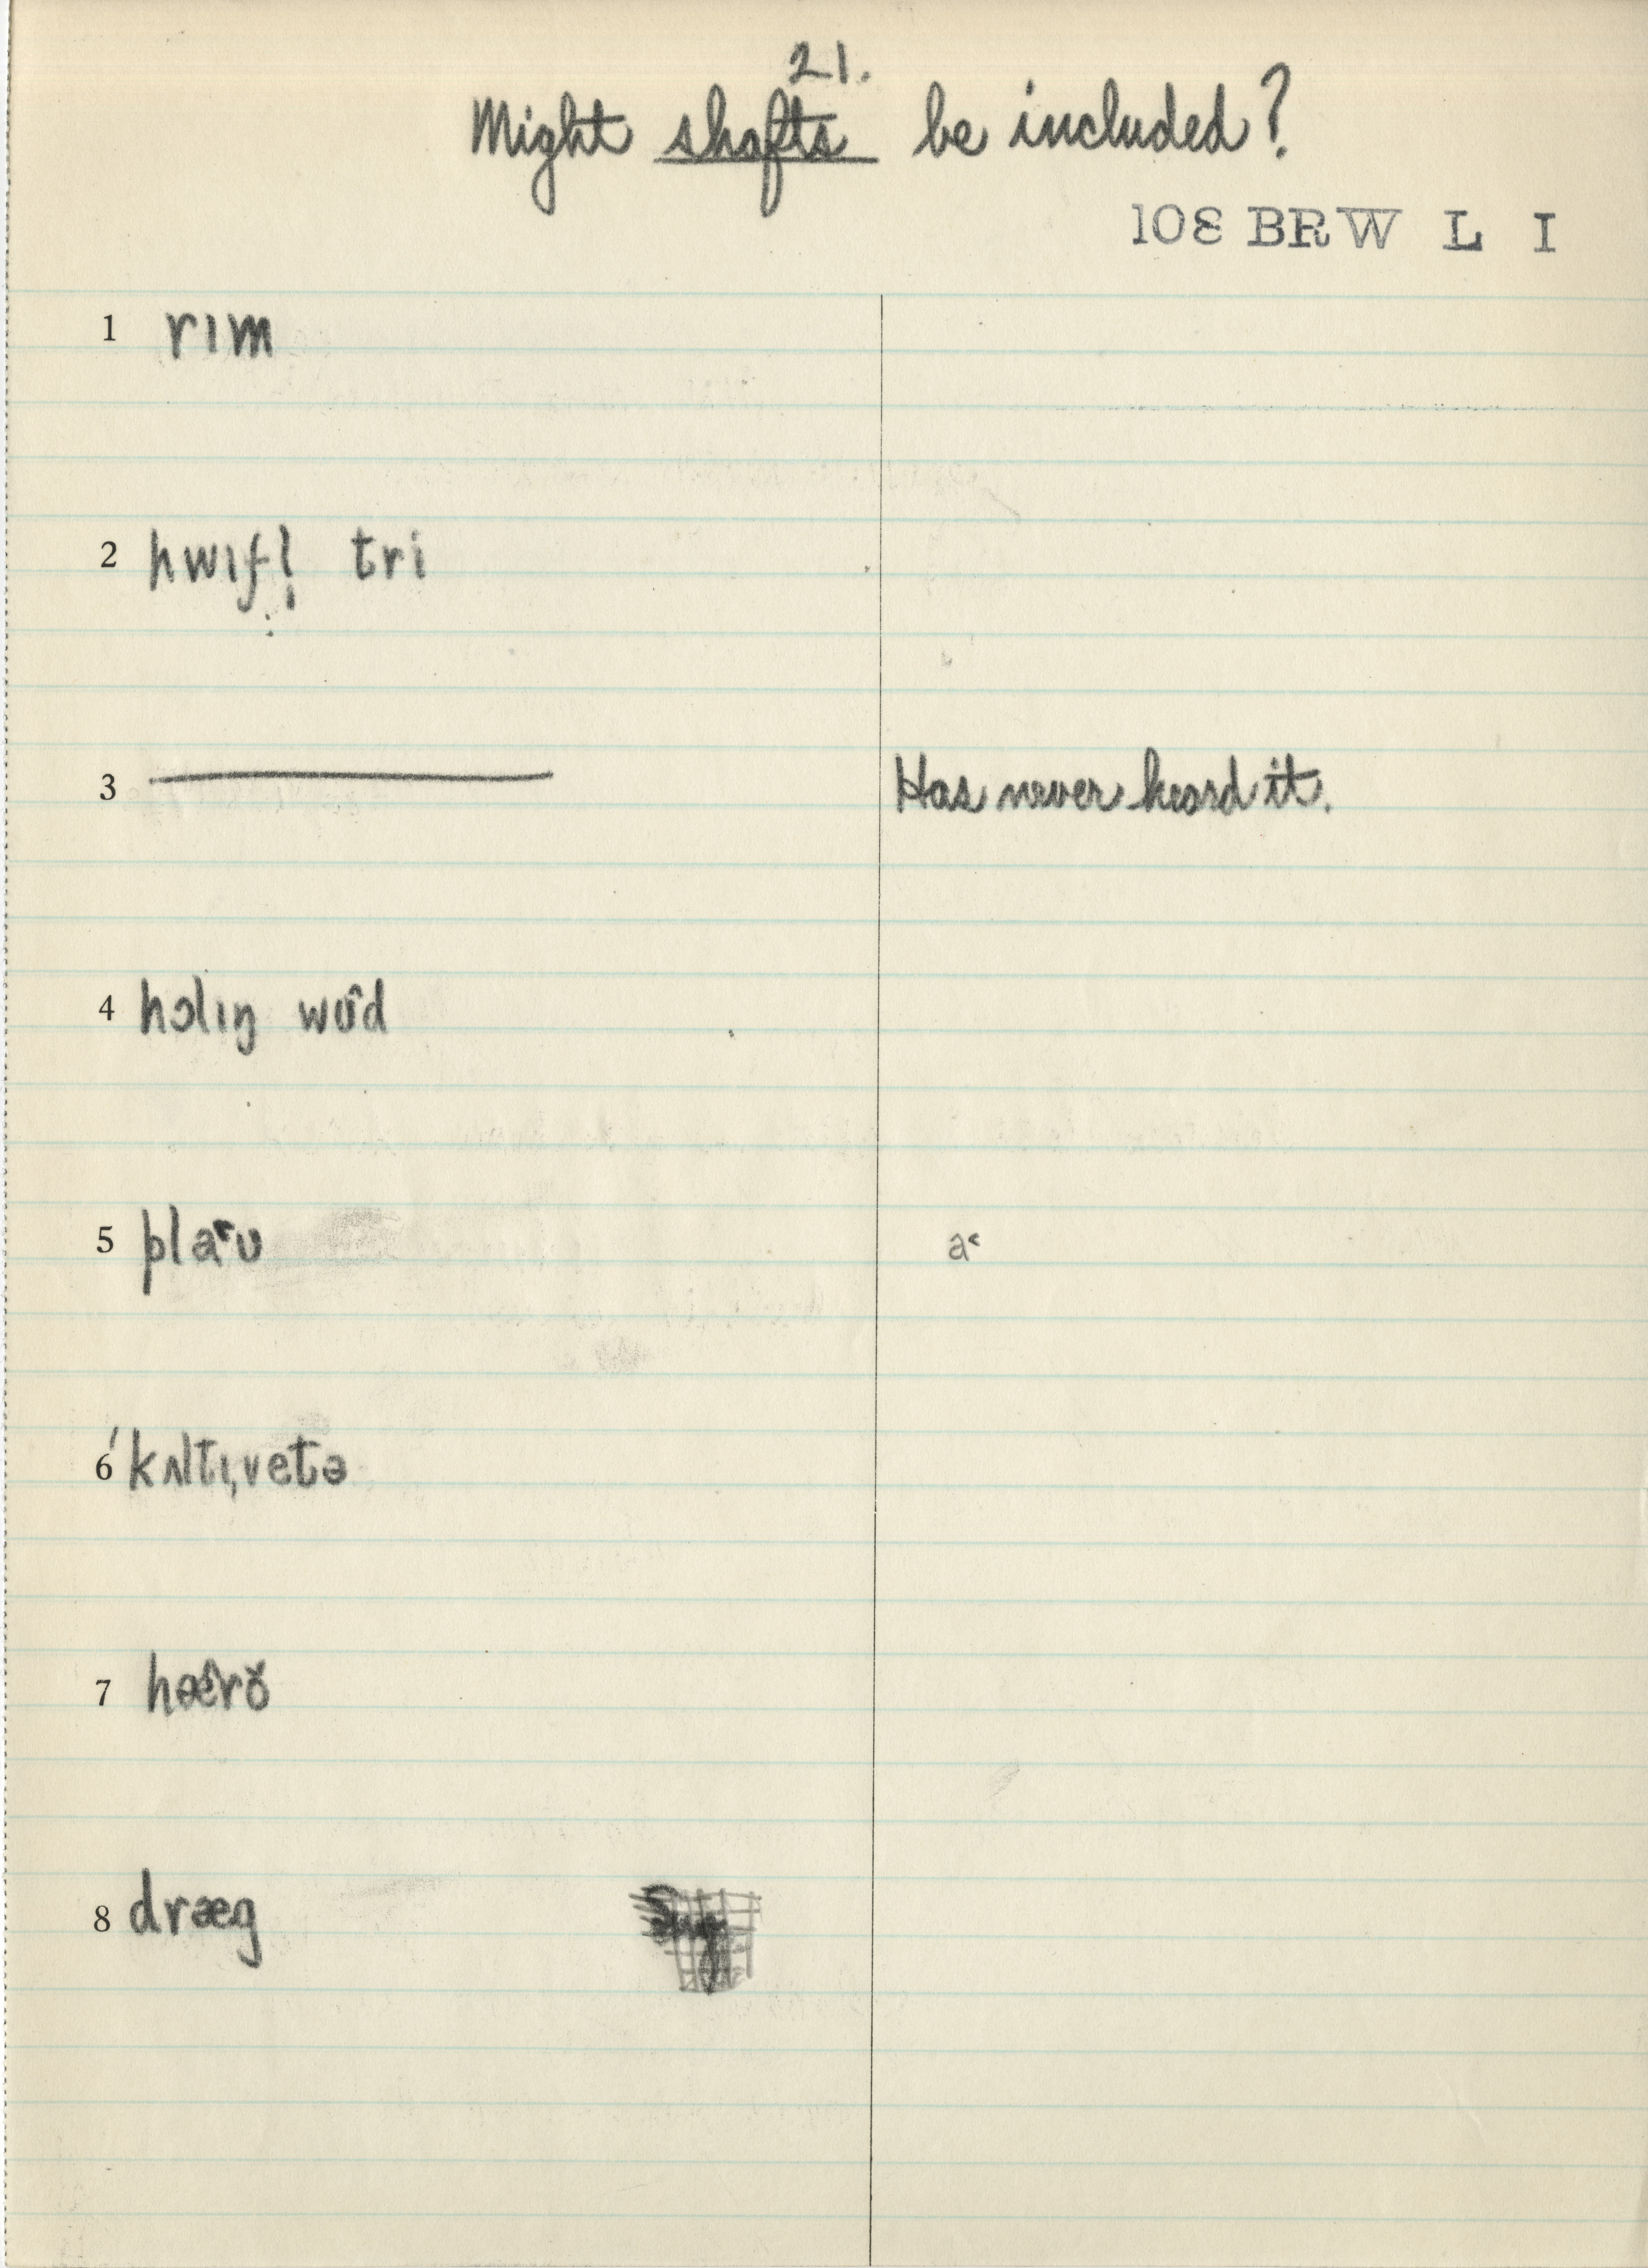 21.
Might shafts be included?
108 BRW L I
1 rɪm
2 hwɪfl̩ tri
3 Has never heard it.
4 hɔlɪŋ wʊ̂d
5 plaˑʊ a˂
6 ˈkʌltɪˌvetə
7 hæ̂rŏ
8 dræg